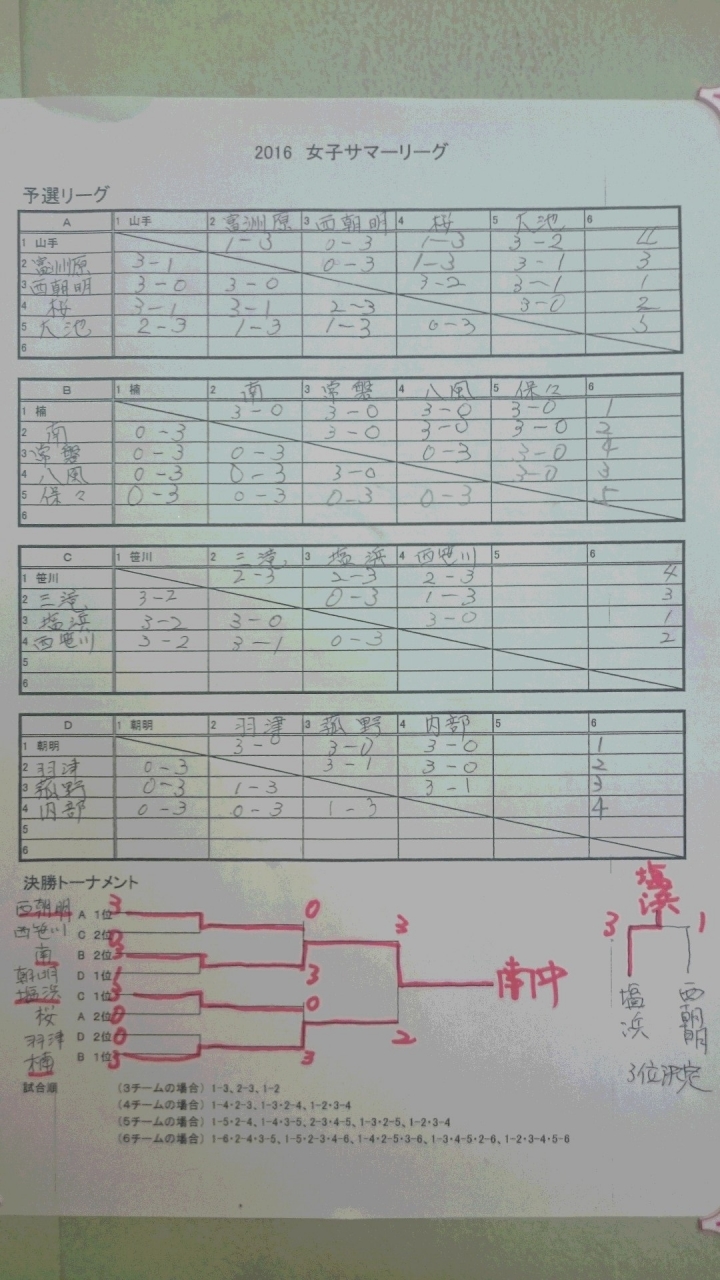 2016 女子サマーリーグ
予選リーグ
A 1 山手 2 富洲原 3 西朝明 4 桜 5 大池 6
1 山手 1-3 0-3 1-3 3-2 4
2 富洲原 3-1 0-3 1-3 3-1 3
3 西朝明 3-0 3-0 3-2 3-1 1
4 桜 3-1 3-1 2-3 3-0 2
5 大池 2-3 1-3 1-3 0-3 5
6
B 1 楠 2 南 3 常磐 4 八風 5 保々 6
1 楠 3-0 3-0 3-0 3-0 1
2 南 0-3 3-0 3-0 3-0 2
3 常磐 0-3 0-3 0-3 3-0 4
4 八風 0-3 0-3 3-0 3-0 3
5 保々 0-3 0-3 0-3 0-3 5
6
C 1 笹川 2 三滝 3 塩浜 4 西笹川 5 6
1 笹川 2-3 2-3 2-3 4
2 三滝 3-2 0-3 1-3 3
3 塩浜 3-2 3-0 3-0 1
4 西笹川 3-2 3-1 0-3 2
5
6
D 1 朝明 2 羽津 3 菰野 4 内部 5 6
1 朝明 3-0 3-0 3-0 1
2 羽津 0-3 3-1 3-0 2
3 菰野 0-3 1-3 3-1 3
4 内部 0-3 0-3 1-3 4
5
6
決勝トーナメント
西朝明 A 1位 3 0
西笹川 C 2位 0
南 B 2位 3 3 3
朝明 D 1位 1
南中
塩浜 C 1位 3 0
桜 A 2位 0
羽津 D 2位 0 2
楠 B 1位 3 3
塩浜
3 1
塩浜 西朝明
3位決定
試合順 (3チームの場合) 1-3、2-3、1-2
(4チームの場合) 1-4・2-3、1-3・2-4、1-2・3-4
(5チームの場合) 1-5・2-4、1-4・3-5、2-3・4-5、1-3・2-5、1-2・3-4
(6チームの場合) 1-6・2-4・3-5、1-5・2-3・4-6、1-4・2-5・3-6、1-3・4-5・2-6、1-2・3-4・5-6